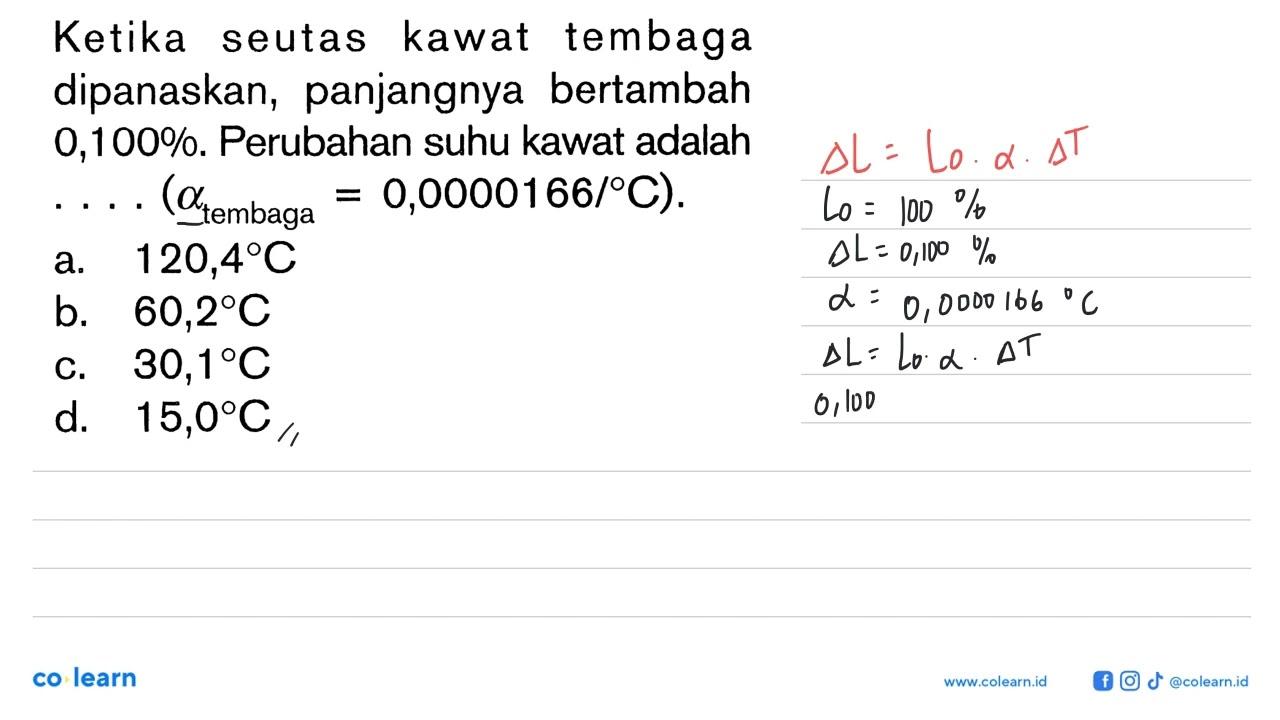 Ketika seutas kawat tembaga
dipanaskan, panjangnya bertambah
0,100%. Perubahan suhu kawat adalah
. . . . (α tembaga = 0,0000166/°C).
a. 120,4°C
b. 60,2°C
c. 30,1°C
d. 15,0°C
ΔL = L0 . α . ΔT
L0 = 100 %
ΔL = 0,100 %
α = 0,0000166 °C
ΔL = L0 . α . ΔT
0,100
co learn
www.colearn.id
@colearn.id